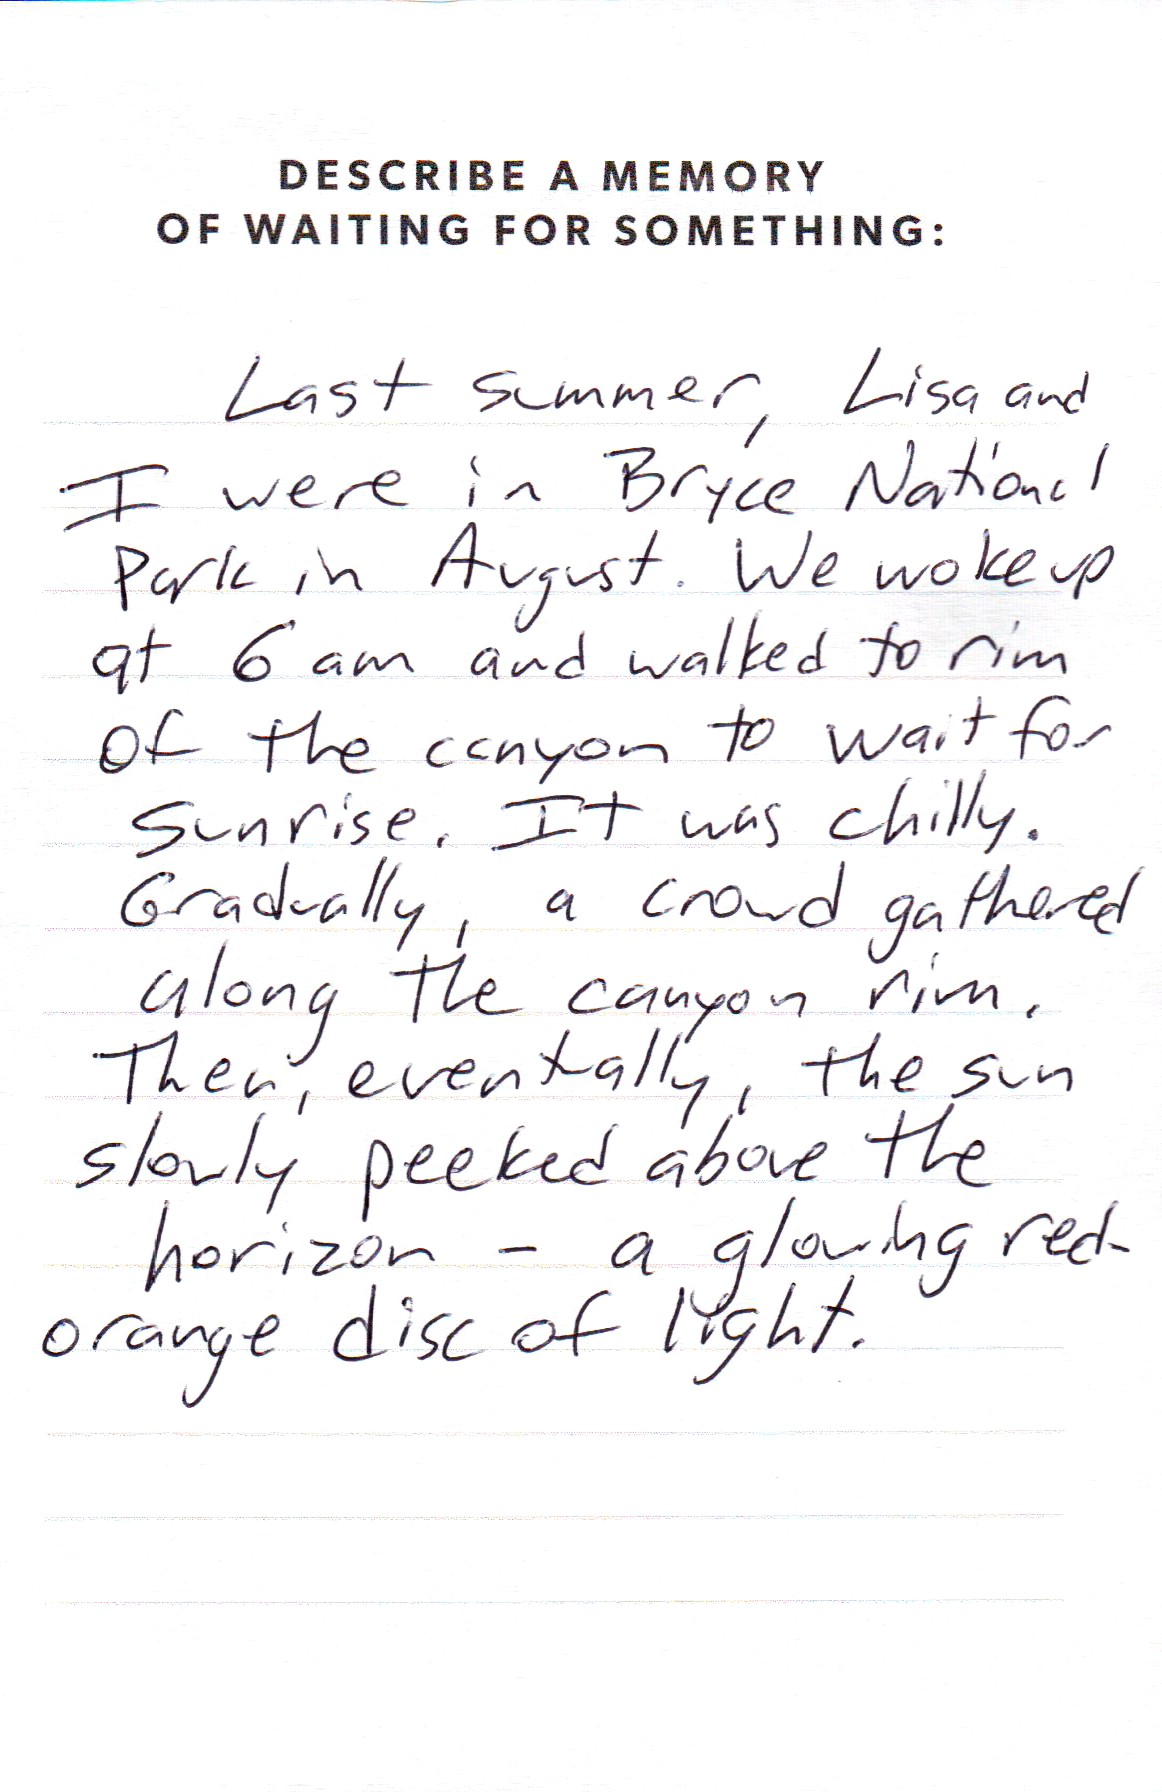 DESCRIBE A MEMORY
OF WAITING FOR SOMETHING:
Last summer, Lisa and
I were in Bryce National
Park in August. We woke up
at 6 am and walked to rim
of the canyon to wait for
sunrise. It was chilly.
Gradually, a crowd gathered
along the canyon rim.
Then, eventually, the sun
slowly peeked above the
horizon - a glowing red-
orange disc of light.